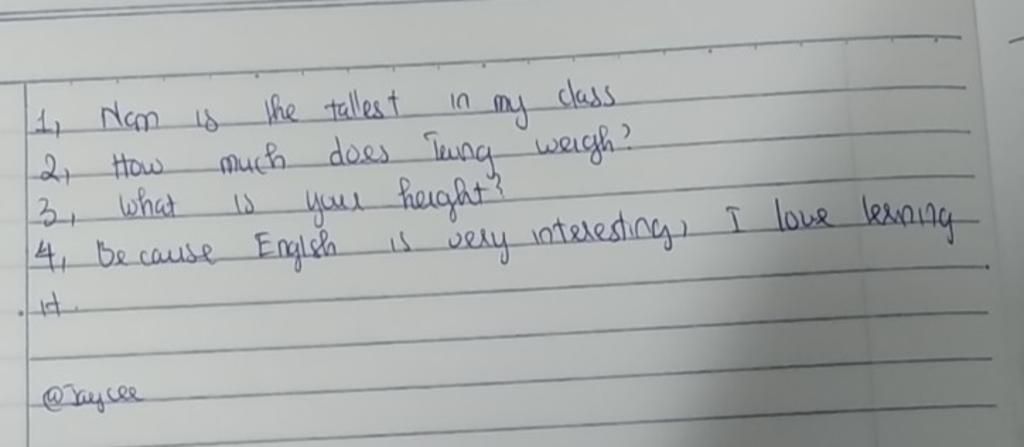 1, Nam is the tallest in my class
2, How much does Tung weigh?
3, What is your height?
4, Because English is very interesting, I love lerning
it.
@Jaycee